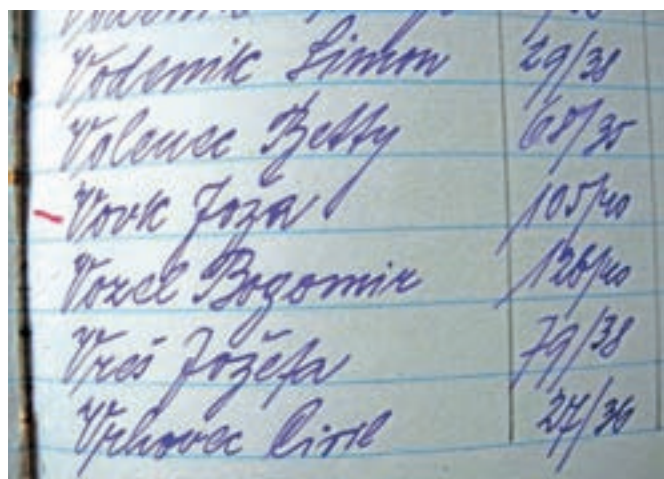 Vodenik Simon 29/38
Volencc Betty 68/35
Vovk Joža 105/40
Vozel Bogomir 126/40
Vreš Jožefa 79/38
Vrhovec Ciril 27/36